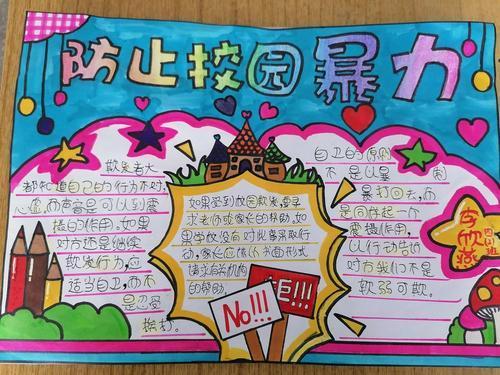 防止校园暴力
欺凌者大
都知道自己的行为不对,
心虚,而声音是可以到震
慑的作用。如果
对方还是继续
欺凌行为,应
适当自卫,而不
是忍受
挨打。
如果受到校园欺凌,要寻
求老师或家长的帮助,如
果学校没有对此事采取行
动,家长应该以书面形式
请求有关机构
的帮助。
No!!!
拒!!!
自卫的原则
不是以暴制
暴打回去,而
是同样起一个
震摄作用,
以行动告诉
对方我们不是
软弱可欺。